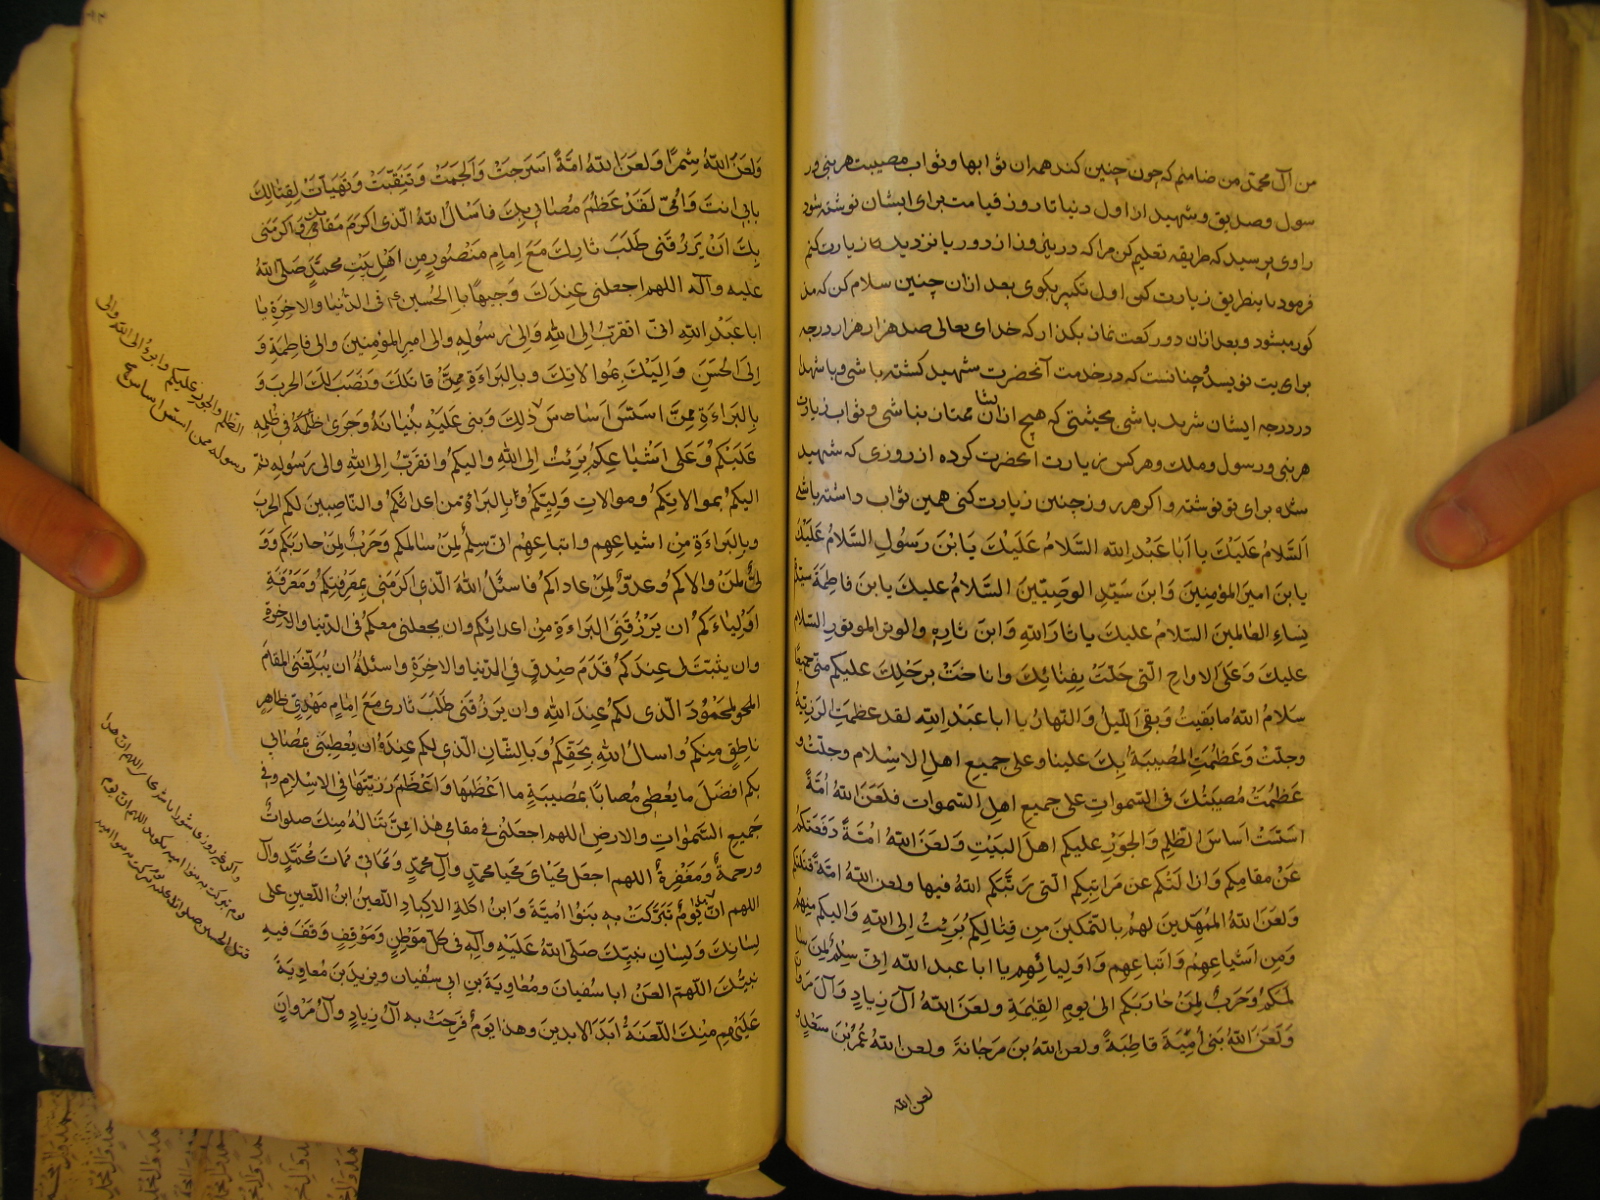 من آل محمد من ضامنم که چون چنین کند همه ان ثوابها و ثواب مصیبت هر نبی و ر
سول و صدیق و شهید از اول دنیا تا روز قیامت برای ایشان نوشته شود
راوی پرسید که طریقه تعلیم کن مرا که در ین روز از دور یا نزدیک زیارت کنم
فرمود باینطریق زیارت کن اول تکبیر بگوی بعد ازان چنین سلام کن که مذ
کور میشود و بعد ازان دو رکعت نماز بگذار که خدای تعالی صد هزار هزار درجه
برای تو بنویسد و چنانست که در خدمت آنحضرت شهید کشته باشی و با شهدا
در درجه ایشان شریک باشی بحیثیتی که هیچ از ایشان ممتاز نباشی و ثواب زیارت
هر نبی و رسول و ملک و هر کس زیارت انحضرت کرده از روزی که شهید
شده برای تو نوشته و اکر هر روز چنین زیارت کنی همین ثواب داشته باشی
اَلسَّلامُ عَلَیْكَ یا اَبا عَبْدِ الله السَّلامُ عَلَیْكَ یَا بْنَ رَسُولِ السَّلامُ عَلَیْكَ
یا بنَ امیرَ المؤمِنینَ وَابنَ سَیّدِ الوصِیّینَ السَّلامُ علیكَ یا بنَ فاطِمَةَ سیّدة
نِساءِ العالمینَ السّلامُ علیكَ یا ثارَ اللهِ وَابنَ ثارِهِ والوترَ الموتورَ السّلام
علیكَ وَعَلَی الاَرواحِ الّتی حَلّتْ بِفِنائِكَ واناخَتْ بِرَحْلِكَ علیکم منّی جمیعًا
سَلامُ اللهِ ما بَقیتُ وبَقِیَ اللّیلُ وَالنّهارُ یا ابا عَبْدِ اللهِ لقد عظمَتِ الرَزیّةُ
وجلّتْ وَعَظُمَتِ المُصیبَةُ بِكَ علینا وعلی جمیعِ اهلِ الاِسْلام وجلّتْ و
عَظُمَتْ مُصیبَتُكَ فی السّمواتِ علی جمیعِ اهلِ السّموات فلعَنَ اللهُ اُمّةً
اسّسَتْ اَساسَ الظّلمِ وَالجَورِ علیکم اهلَ البَیْتِ ولَعَنَ اللهُ اُمّةً دَفَعَتْکم
عَنْ مقامِکم وَازالَتْکم عن مَراتِبِکم الّتی رَتّبَکم اللهُ فیها ولعن اللهُ امّةً قتلتکم
ولَعَنَ اللهُ المُمَهّدینَ لهم بالتّمکینِ مِن قِتالِکم بَرِئتُ اِلی اللهِ وَالیکم مِنهم
وَمِن اَشیاعِهِم وَاتباعِهِم وَاَولیائِهِم یا ابا عبد الله اِنّی سِلمٌ لِمَن سا
لمَکم وَحَربٌ لِمَن حارَبَکم الی یومِ القِیمَةِ ولعَنَ اللهُ آلَ زِیادٍ وَآلَ مَروان
وَلَعَنَ اللهُ بَنی اُمَیَّةَ قاطِبَةً ولعن اللهُ بنَ مَرجانةَ ولعن اللهُ عُمَرَ بنَ سَعْدٍ و
لعن الله
وَلعَنَ اللهُ شِمرًا وَلعنَ اللهُ امّةً اَسرَجَتْ وَاَلجَمَتْ وَتنقّبَتْ وَتَهیّاَتْ لِقِتالِكَ
بابی انتَ وَامّی لَقَدْ عَظُمَ مُصابی بِكَ فاسألُ اللهَ الّذی اکرَمَ مَقامَكَ وَاکرَمَنی
بِكَ اَنْ یَرزُقَنی طَلَبَ ثارِكَ مَعَ اِمامٍ مَنْصُورٍ مِن اَهْلِ بَیْتِ محمّدٍ صَلّی اللهُ
علیه وآله اللهم اجعلنی عِندَكَ وَجیهًا بِالحُسین ع فی الدّنیا والاخِرَةِ یا
ابا عَبْدِ اللهِ انّی اتقرّبُ الی اللهِ وَالی رَسُولِهِ والی امیرِ المؤمنینَ والی فاطِمَةِ وَ
اِلی الحسَنِ وَاِلَیْكَ بِموالاتِكَ وبِالبراءَةِ ممّن قاتلكَ ونصَبَ لكَ الحربَ وَ
بِالبَراءَةِ مِمّن اسّسَ اساسَ ذلِكَ وَبنی عَلَیْهِ بُنیانَهُ وجَری ظُلمُهُ فی ظلمِهِ
عَلَیْکم وعَلی اَشیاعِکم بَرِئتُ اِلی اللهِ والیکم واتقرّبُ اِلی اللهِ والی رَسُولِهِ ثمّ
الیکم بموالاتِکم وموالاتِ وَلیّکم وبالبراءَةِ من اعدائکم والنّاصِبینَ لکم الحربَ
وبالبراءَةِ مِن اشیاعِهِم واتباعِهِم انّی سِلمٌ لِمَنْ سالمکم وَحَربٌ لِمَن حارَبَکم وَوَ
لیٌّ لِمَنْ والاکم وعدوٌّ لِمَنْ عاداکم فاسئلُ اللهَ الّذی اکرَمَنی بِمَعرفَتِکم وَمَعرِفَةِ
اَوْلیاءِکم ان یَرْزُقَنی البَراءَةَ مِن اعدائِکم وان یجعلنی معکم فی الدّنیا والاخِرَةِ
وان یثبّتَ لی عِندَکم قَدَمَ صِدقٍ فِی الدّنیا والاخِرَةِ واسئلهُ ان یُبَلّغَنی المقامَ
المحمُودَ الّذی لکم عِندَ اللهِ وان یَرزُقَنی طَلَبَ ثاری مَعَ اِمامٍ مَهْدِیٍّ ظاهِرٍ
ناطِقٍ مِنکم واسالُ اللهَ بِحَقِّکم وَبالشّانِ الّذی لکم عِندَهُ ان یُعطِیَنی بمُصابی
بکم افضَلَ ما یُعطی مُصابًا بمُصیبَةٍ ما اَعْظَمَها وَاَعْظَمَ رَزیّتَها فی الاِسْلامِ وفی
جَمیعِ السّمواتِ والارضِ اللهم اجعَلنی فی مقامی هذا مِمّن تنالُهُ مِنكَ صلواتٌ
ورحمةٌ وَمَغْفِرةٌ اللهم اجعَل مَحیای مَحیا محمدٍ وآلِ محمدٍ وَمَماتی مَماتَ مُحمّدٍ وآلِ
اللهم انّ هذا یَومٌ تَبَرَّکَتْ بِهِ بَنُوا اُمَیّةَ وَابنُ اکلةِ الاکبادِ اللّعینُ ابنُ اللّعینِ علی
لِسانِكَ وَلِسانِ نَبیِّكَ صَلّی اللهُ عَلَیْهِ وآلِهِ فی کلّ مَوْطِنٍ وَمَوْقِفٍ وَقَفَ فیهِ
نبیُّكَ اللّهمّ العَنْ ابا سفیانَ ومُعاوِیَةَ بنِ ابی سفیانَ ویزیدَ بنَ مُعاوِیَةَ
عَلَیْهِم مِنكَ اللّعنَةُ اَبَدَ الابدینَ وهذا یَومٌ فَرِحَتْ به آلُ زِیادٍ وآلُ مَرْوانٍ
الظلم والجور علیکم وابرؤ الی الله والی
رسوله ممن اسس اساس
واکر غیر روز عاشورا باشد بجای اللهم ان هذا
یوم تبرکت به بنوا امیه بکوید اللهم ان یوم
قتل الحسین صلواتك علیه تبرکت به بنوا امیه